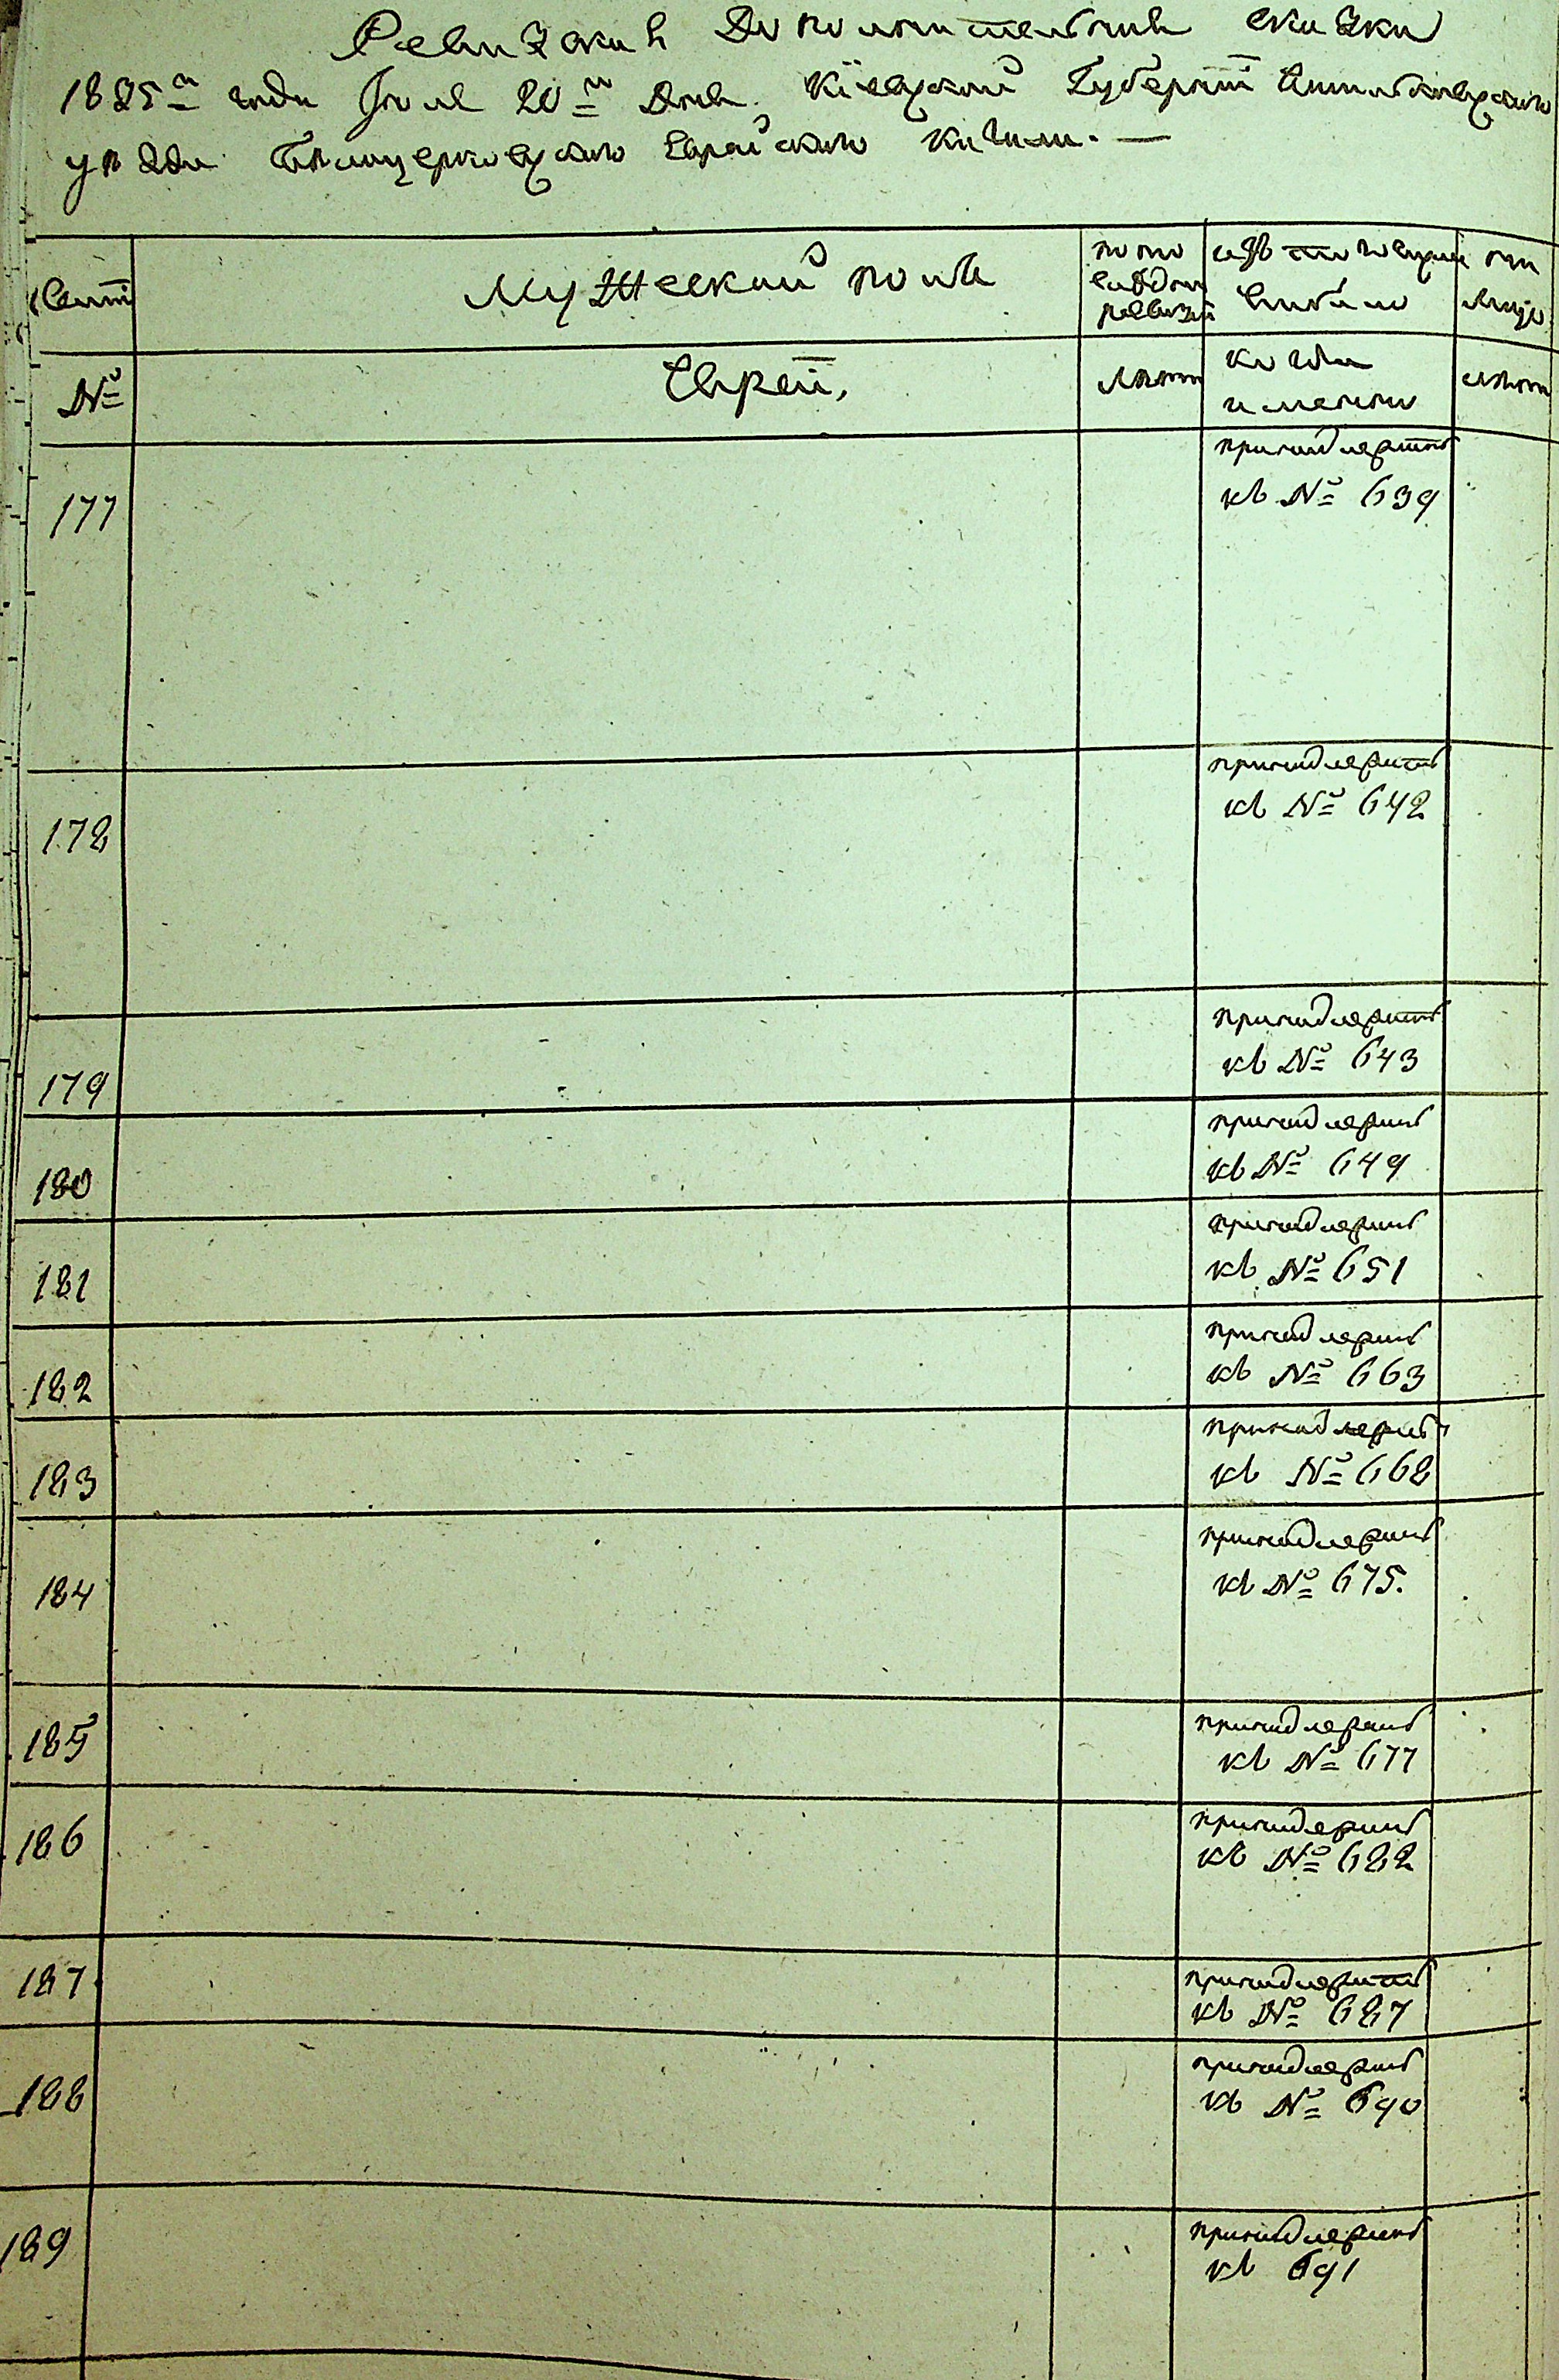 Ревизская Дополнительная сказка
1825го года Июля 20го дня Кіевской Губерніи Липовецкаго
уѣзда Бѣлоцерковскаго Еврейскаго Кагала. —
Семьи
Мужеский полъ
по по
слѣдней
ревизіи
изъ того числа
выбыло
ны
лицо
№
Евреи,
лѣта
когда
именно
лѣта
177
принадлежитъ
къ № 639
178
принадлежитъ
къ № 642
179
принадлежитъ
къ № 643
180
принадлежитъ
къ № 649
181
принадлежитъ
къ № 651
182
принадлежитъ
къ № 663
183
принадлежитъ
къ № 668
184
принадлежитъ
къ № 675.
185
принадлежитъ
къ № 677
186
принадлежитъ
къ № 682
187
принадлежитъ
къ № 687
188
принадлежитъ
къ № 690
189
принадлежитъ
къ 691